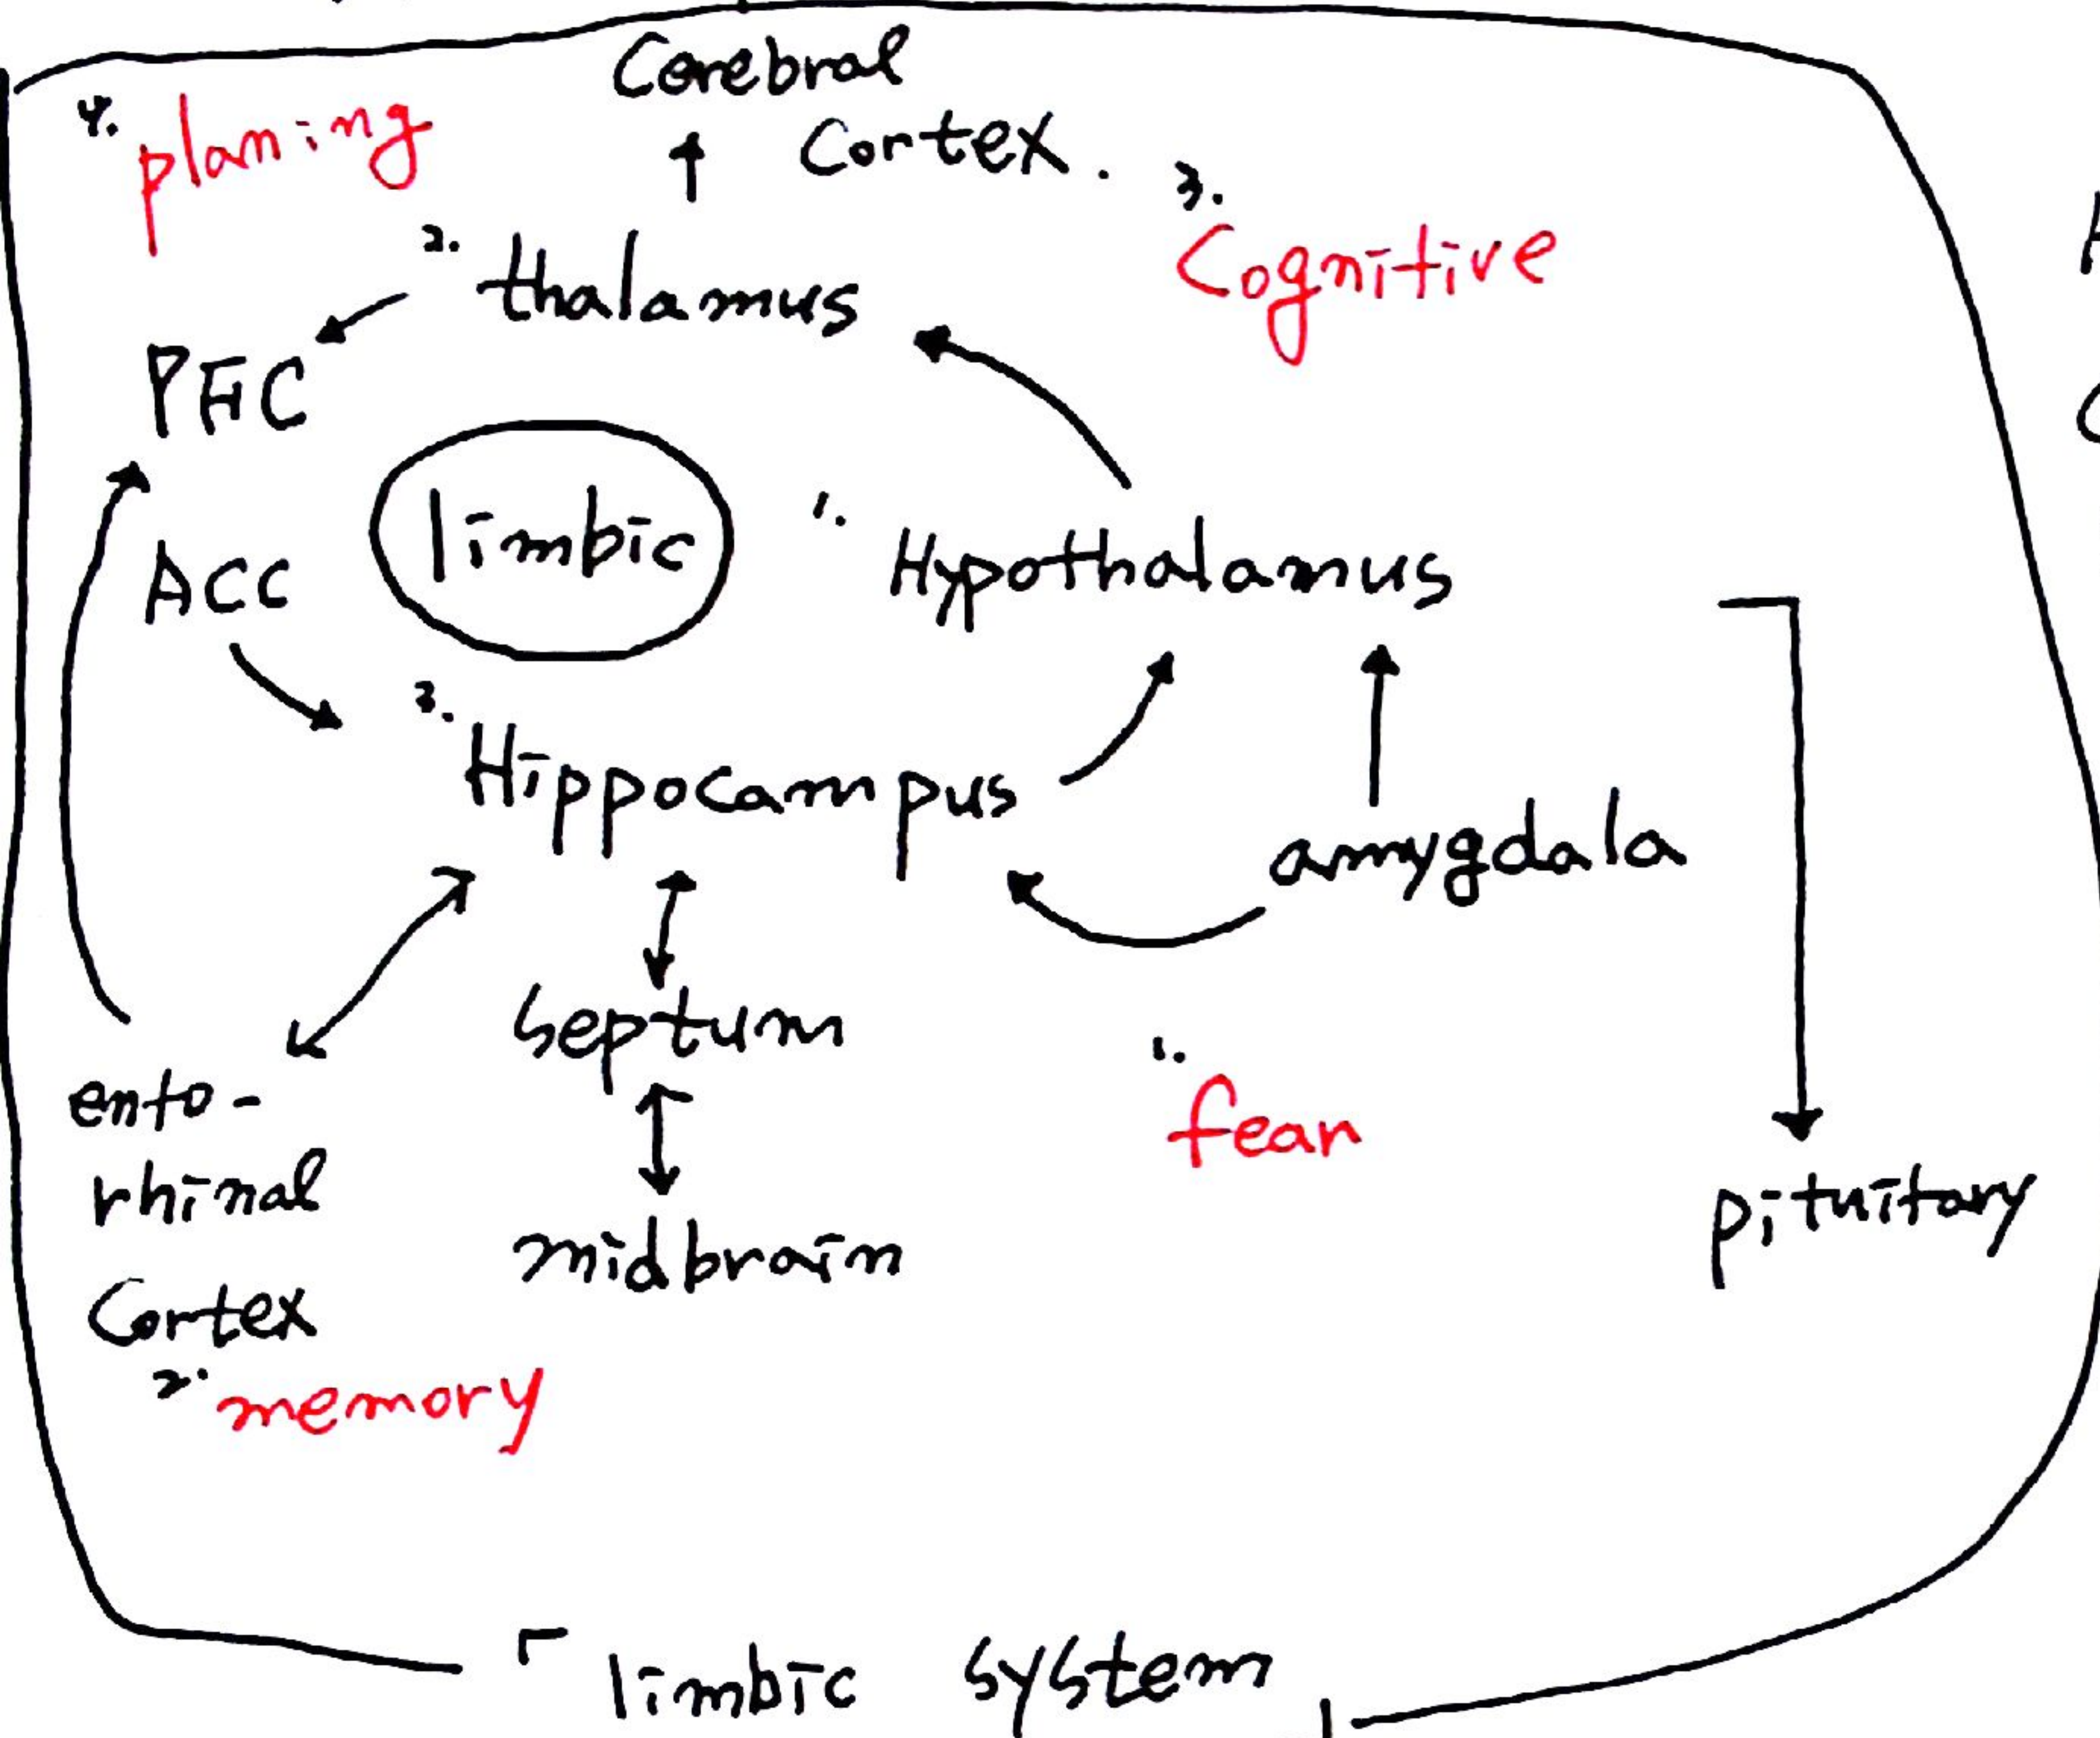 Cerebral
Cortex.
4. planing
3. Cognitive
2. thalamus
PFC
limbic
1. Hypothalamus
ACC
3. Hippocampus
amygdala
septum
1. fear
ento-
rhinal
Cortex
midbrain
pituitary
2. memory
「limbic system」